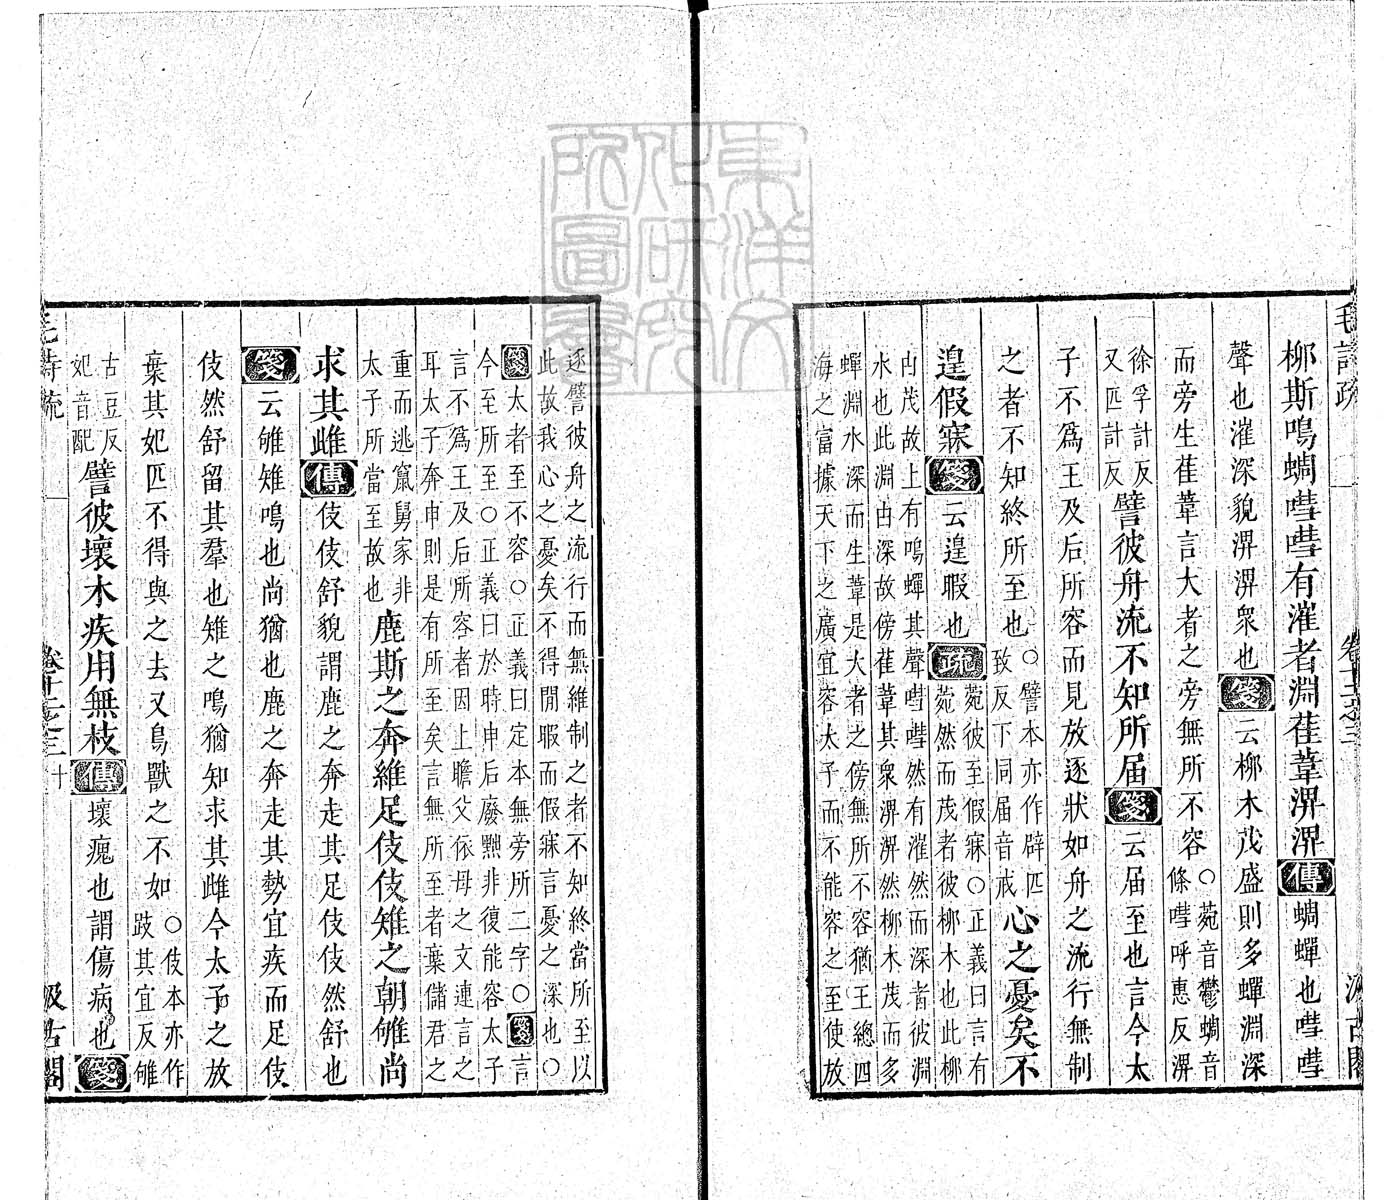 毛詩疏 卷十二之三 汲古閣
柳斯鳴蜩嘒嘒有漼者淵萑葦淠淠傳蜩蟬也嘒嘒
聲也漼深貌淠淠衆也箋云柳木茂盛則多蟬淵深
而旁生萑葦言大者之旁無所不容○菀音鬱蜩音
條嘒呼惠反淠
徐孚計反
又匹計反譬彼舟流不知所屆箋云屆至也言今太
子不爲王及后所容而見放逐狀如舟之流行無制
之者不知終所至也○譬本亦作辟匹
致反下同屆音戒心之憂矣不
遑假寐箋云遑暇也疏菀彼至假寐○正義曰言有
菀然而茂者彼柳木也此柳
由茂故上有鳴蟬其聲嘒嘒然有漼然而深者彼淵
水也此淵由深故傍萑葦其衆淠淠然柳木茂而多
蟬淵水深而生葦是大者之傍無所不容猶王總四
海之富據天下之廣宜容太子而不能容之至使放
逐譬彼舟之流行而無維制之者不知終當所至以
此故我心之憂矣不得閒暇而假寐言憂之深也○
箋太者至不容○正義曰定本無旁所二字○箋言
今至所至○正義曰於時申后廢黜非復能容太子
言不爲王及后所容者因上瞻父依母之文連言之
耳太子奔申則是有所至矣言無所至者棄儲君之
重而逃竄舅家非
太子所當至故也鹿斯之奔維足伎伎雉之朝雊尚
求其雌傳伎伎舒貌謂鹿之奔走其足伎伎然舒也
箋云雊雉鳴也尚猶也鹿之奔走其勢宜疾而足伎
伎然舒留其羣也雉之鳴猶知求其雌今太子之放
棄其妃匹不得與之去又鳥獸之不如○伎本亦作
跂其宜反雊
古豆反
妃音配譬彼壞木疾用無枝傳壞瘣也謂傷病也箋
毛詩疏 卷十二之三 十 汲古閣
東洋文
化研究
所圖書